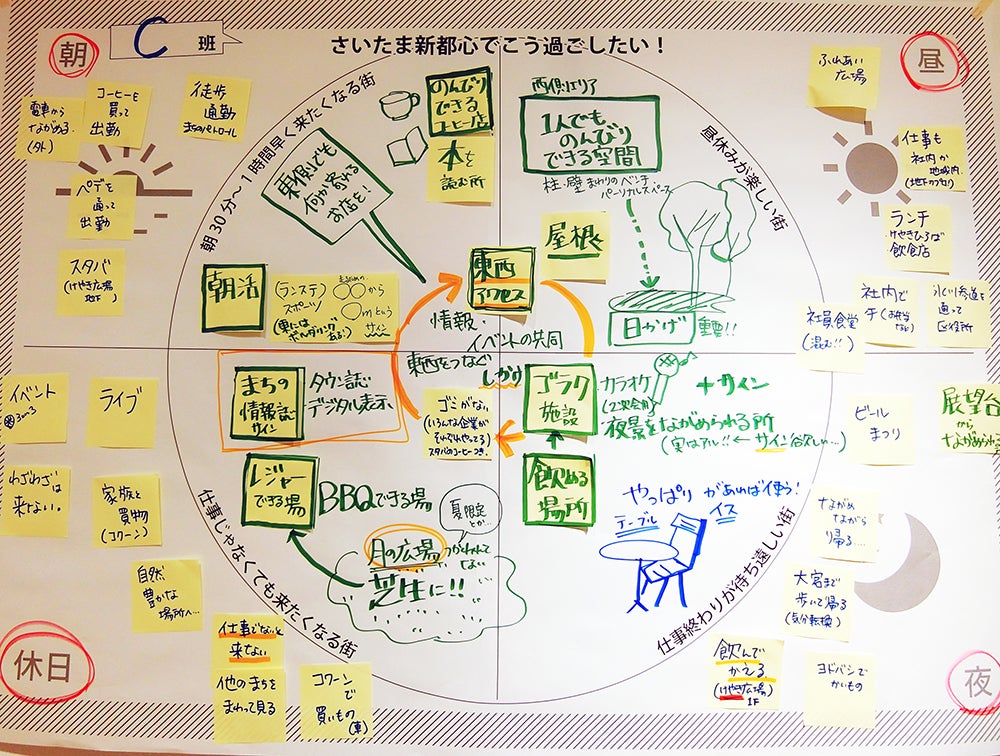 朝
C 班
さいたま新都心でこう過ごしたい！
昼
朝30分～1時間早く来たくなる街
昼休みが楽しい街
電車から
ながめる.
(外)
コーヒーを
買って
出勤
徒歩
通勤
まちのパトロール
ペデを
通って
出勤
スタバ
(けやき広場
地下)
東側でも
何か寄れる
お店を!
のんびり
できる
コーヒー店
本を
読む所
朝活
(ランステ)
スポーツ
○○から
○mという
サイン
(東には
ボルダリング
ある!)
西側エリア
1人でも、
のんびり
できる空間
柱・壁まわりのベンチ
パーソナルスペース
屋根
東西
アクセス
日かげ
重要!!
ふれあい
広場
仕事も
社内か
地域内.
ランチ
けやきひろば
飲食店
社内で
(お弁当
など)
社員食堂
(混む!!)
氷川参道を
通って
区役所
情報・
イベントの共同
東西をつなぐ
しかけ
まちの
情報誌
サイン
タウン誌
デジタル表示
ゴミがない
(いろんな企業が
それぞれやってる)
スタバのコーヒーつき.
ゴラク
施設
カラオケ
(2次会用)
＋サイン
夜景をながめられる所
(実はアル!!←サイン欲しい…)
飲める
場所
レジャー
できる場
BBQできる場
夏限定
とか…
月の広場
つかわれて
ない
芝生に!!
やっぱり
テーブル
イス
があれば使う!
イベント
ライブ
わざわざは
来ない。
家族と
買物
(コクーン)
自然
豊かな
場所へ…
仕事でないと
来ない
他のまちを
まわって見る
コクーン
で
買いもの
(車)
ビール
まつり
展望台
から
ながめられる
ながめ
ながら
帰る…
大宮まで
歩いて帰る
(気分転換)
飲んで
かえる
(けやき広場)
1F
ヨドバシで
かいもの
仕事じゃなくても来たくなる街
仕事終わりが待ち遠しい街
休日
夜